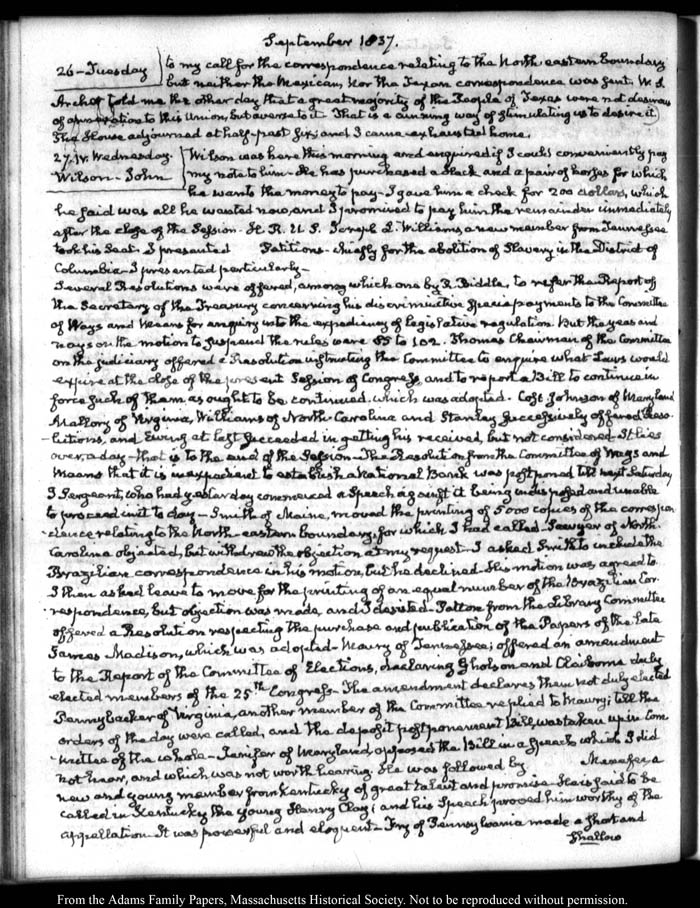 September 1837.
26 - Tuesday
to my call for the correspondence relating to the North eastern boundary
but neither the Mexican, nor the Texan correspondence was sent. W. S.
Archer told me the other day that a great majority of the People of Texas were not desirous
of annexation to this Union, but averse to it. That is a cunning way of stimulating us to desire it.
The House adjourned at half-past six; and I came exhausted home.
27. IV. Wednesday.
Wilson - John
Wilson was here this morning and enquired if I could conveniently pay
my note to him - He has purchased a Hack and a pair of horses for which
he wants the money to pay - I gave him a check for 200 dollars, which
he said was all he wanted now, and I promised to pay him the remainder immediately
after the close of the Session - H. R. U. S. Joseph L. Williams, a new member from Tennessee
took his Seat - I presented Petitions - chiefly for the abolition of Slavery in the District of
Columbia - I presented particularly -
Several Resolutions were offered, among which one by R. Biddle, to refer the Report of
the Secretary of the Treasury concerning his discriminative Specie payments to the Committee
of Ways and Means for enquiry into the expediency of legislative regulation. But the yeas and
nays on the motion to suspend the rules were 85 to 102. Thomas Chairman of the Committee
on the judiciary offered a Resolution instructing the Committee to enquire what Laws would
expire at the close of the present Session of Congress, and to report a Bill to continue in
force such of them as ought to be continued. which was adopted - Cost Johnson of Maryland
Mallory of Virginia, Williams of North-Carolina and Stanley successively offered Reso-
lutions, and Ewing at last succeeded in getting his received, but not considered - It lies
over, a day - that is to the end of the Session - The Resolution from the Committee of Ways and
Means that it is inexpedient to establish a National Bank was postponed till next Saturday
J Sergeant, who had yesterday commenced a Speech against it being indisposed and unable
to proceed in it to day - Smith of Maine, moved the printing of 5000 copies of the correspon-
dence relating to the North-eastern boundary, for which I had called. Sawyer of North-
Carolina objected, but withdrew the objection at my request - I asked Smith to include the
Brazilian correspondence in his motion, but he declined - His motion was agreed to.
I then asked leave to move for the printing of an equal number of the Brazilian Cor-
respondence, but objection was made, and I desisted - Patton from the Library Committee
offered a Resolution respecting the purchase and publication of the Papers of the late
James Madison, which was adopted - Maury of Tennessee; offered an amendment
to the Report of the Committee of Elections, declaring Gholson and Claiborne duly
elected members of the 25th Congress - The amendment declares them not duly elected
Pennybacker of Virginia, another member of the Committee replied to Maury; till the
orders of the day were called, and the deposit postponement Bill, was taken up in Com-
mittee of the whole - Jenifer of Maryland opposed the Bill in a Speech which I did
not hear, and which was not worth hearing. He was followed by Menefee a
new and young member from Kentucky of great talent and promise - He is said to be
called in Kentucky the young Henry Clay; and his Speech proved him worthy of the
appellation - It was powerful and eloquent - Fry of Pennsylvania made a short and
shallow
From the Adams Family Papers, Massachusetts Historical Society. Not to be reproduced without permission.